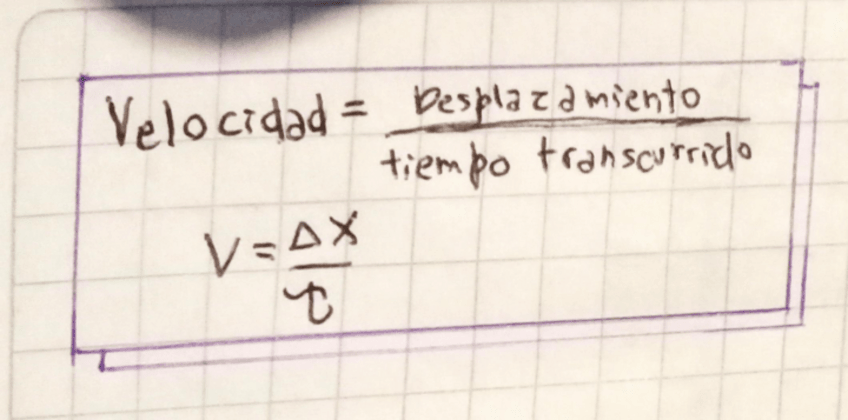 Velocidad = Desplazamiento
tiempo transcurrido
V = Δx
t